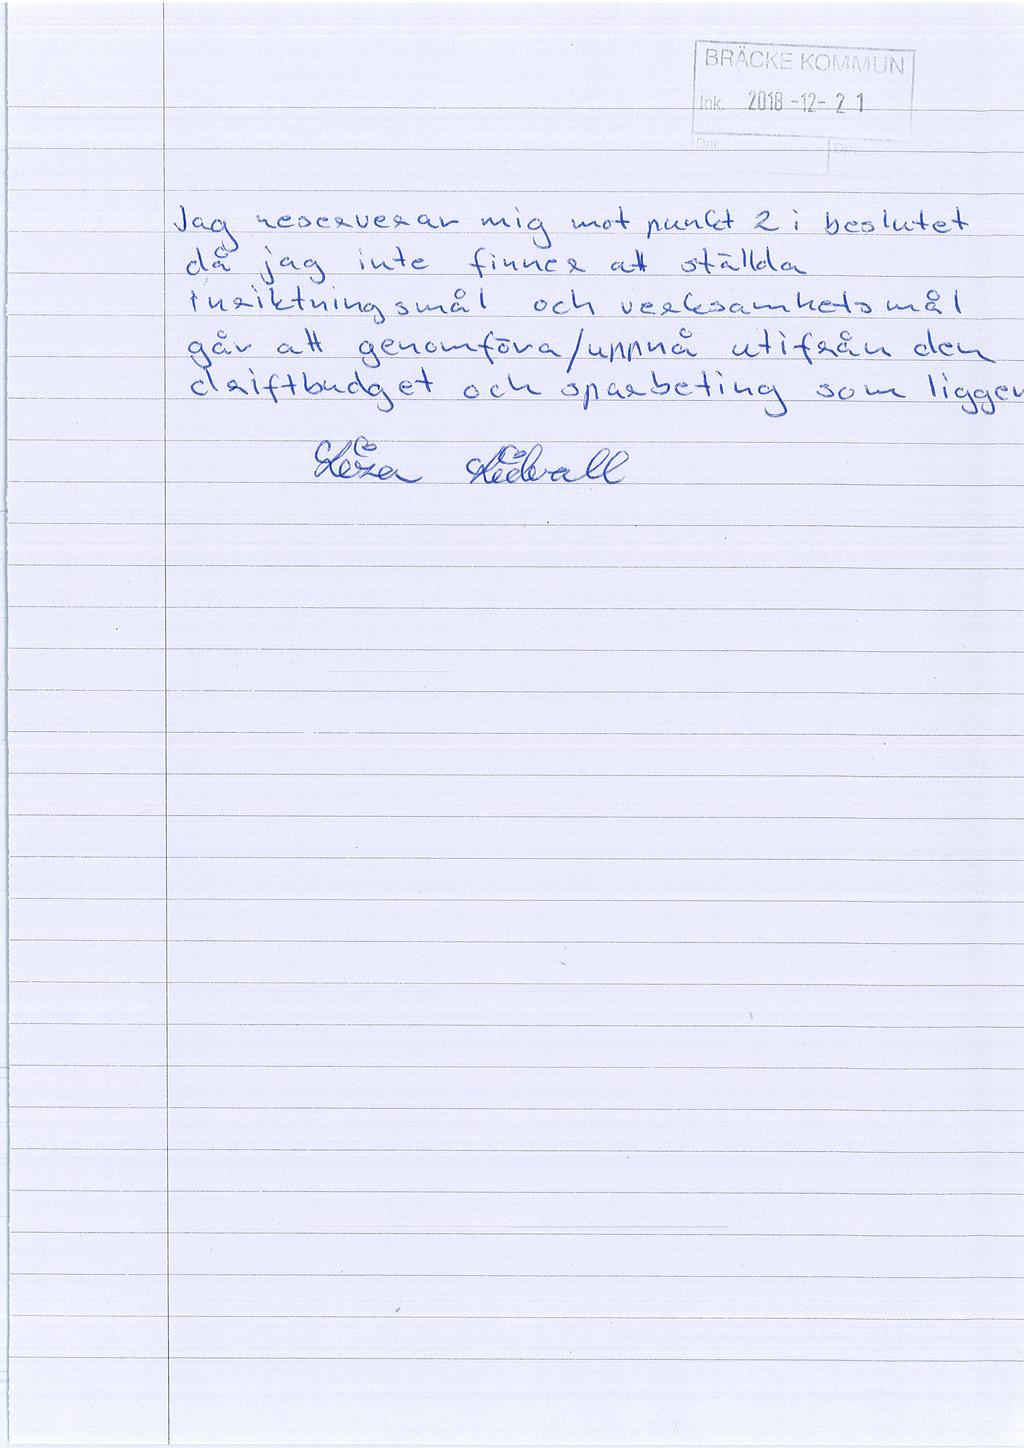 BRÄCKE KOMMUN
Ink. 2018-12-21
Dnr
Jag reserverar mig mot punkt 2 i beslutet
då jag inte finner att ställda
inriktningsmål och verksamhetsmål
går att genomföra/uppnå utifrån den
driftbudget och sparbeting som ligger